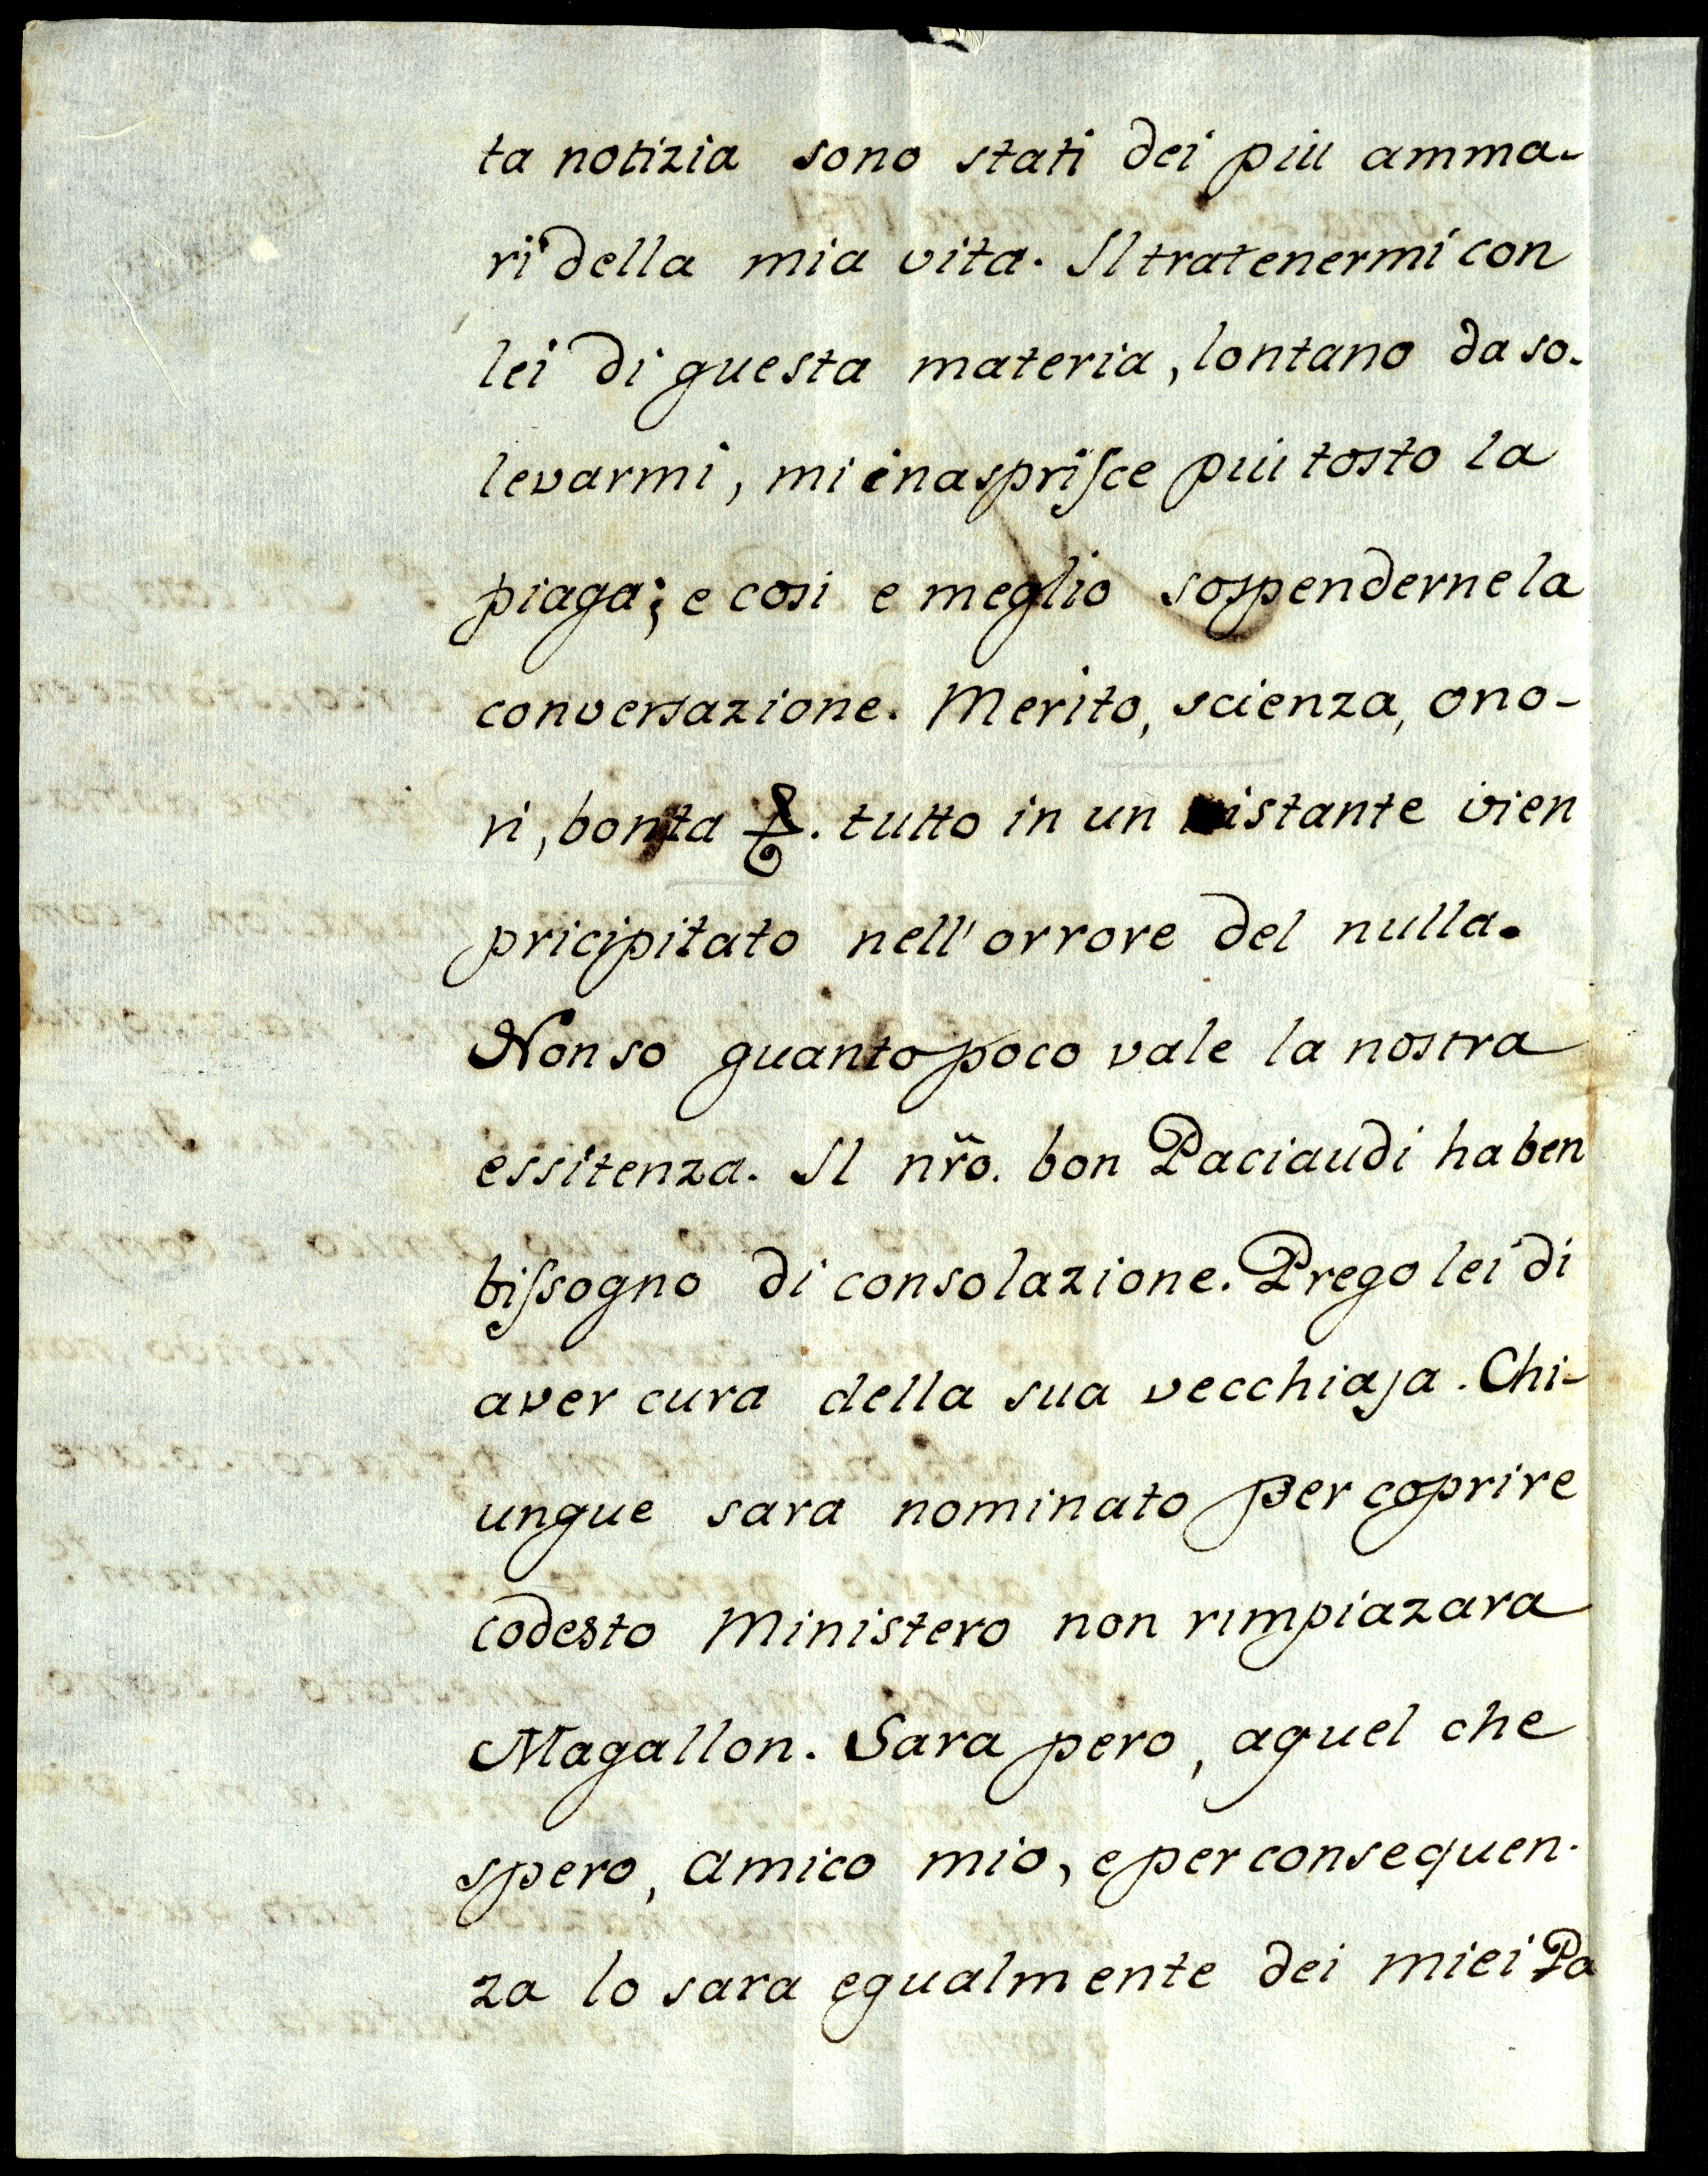 ta notizia sono stati dei piu amma-
ri della mia vita. Il tratenermi con
lei di questa materia, lontano da so-
levarmi, mi inasprisce piu tosto la
piaga; e cosi e meglio sospenderne la
conversazione. Merito, scienza, ono-
ri, bonta &. tutto in un istante vien
pricipitato nell'orrore del nulla.
Non so quanto poco vale la nostra
essitenza. Il nr̃o. bon Paciaudi ha ben
bissogno di consolazione. Prego lei di
aver cura della sua vecchiaja. Chi-
unque sara nominato per coprire
codesto Ministero non rimpiazara
Magallon. Sara pero, aquel che
spero, amico mio, e per consequen-
za lo sara egualmente dei miei Pa